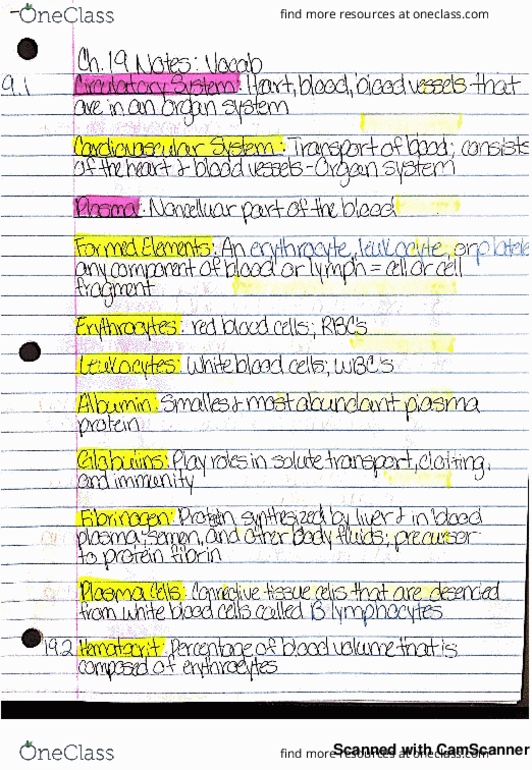 OneClass
find more resources at oneclass.com
Ch. 19 Notes: Vocab
9.1 Circulatory System: Heart, blood, blood vessels that
are in an organ system
Cardiovascular System: Transport of blood; consists
of the heart & blood vessels - Organ system
Plasma: Noncelluar part of the blood
Formed Elements: An erythrocyte, leukocyte, or platele
any component of blood or lymph = cell or cell
fragment
Erythrocytes: red blood cells; RBC's
Leukocytes: White blood cells; WBC's
Albumin: Smallest & most abundant plasma
protein
Globulins: Play roles in solute transport, clotting,
and immunity
Fibrinogen: Protein synthesized by liver & in blood
plasma, semen, and other body fluids; precursor
to protein fibrin
Plasma Cells: Connective tissue cells that are descended
from white blood cells called B lymphocytes
19.2 Hematocrit: Percentage of blood volume that is
composed of erythrocytes
OneClass
find more resources at oneclass.com
Scanned with CamScanner